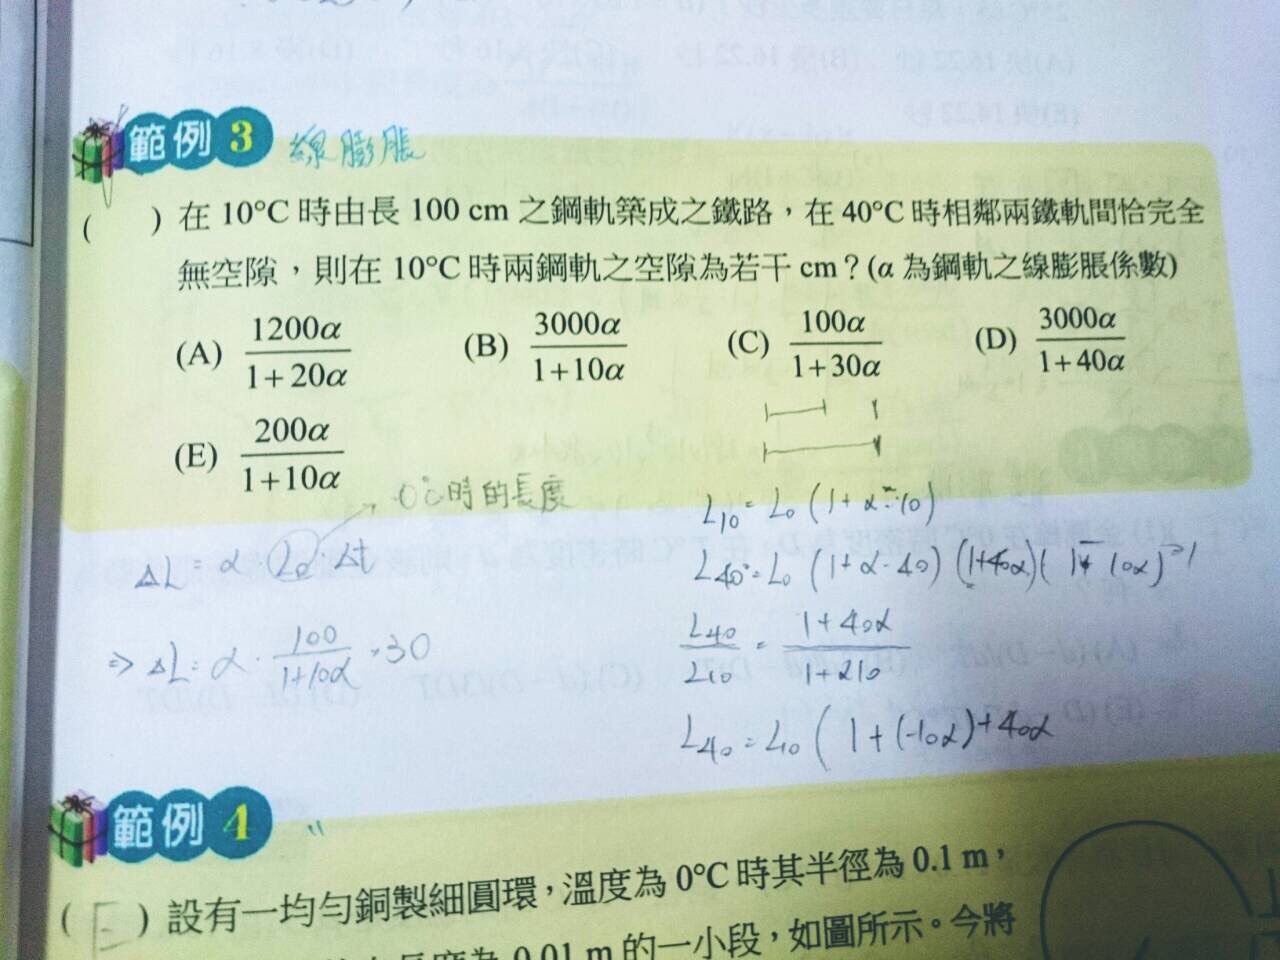 範例 3 線膨脹
( ) 在 10°C 時由長 100 cm 之鋼軌築成之鐵路，在 40°C 時相鄰兩鐵軌間恰完全
無空隙，則在 10°C 時兩鋼軌之空隙為若干 cm？(α 為鋼軌之線膨脹係數)
(A) 1200α/1+20α (B) 3000α/1+10α (C) 100α/1+30α (D) 3000α/1+40α
(E) 200α/1+10α
0°C時的長度
ΔL = α · L₀ · Δt
⇒ ΔL = α · 100/1+10α · 30
L₁₀ = L₀ (1+α·10)
L₄₀ = L₀ (1+α·40) (1+40α)(1-10α)
L₄₀/L₁₀ = 1+40α/1+α10
L₄₀ = L₁₀ (1+(-10α)+40α
範例 4
(E) 設有一均勻銅製細圓環，溫度為 0°C 時其半徑為 0.1 m，
0.01 m 的一小段，如圖所示。今將